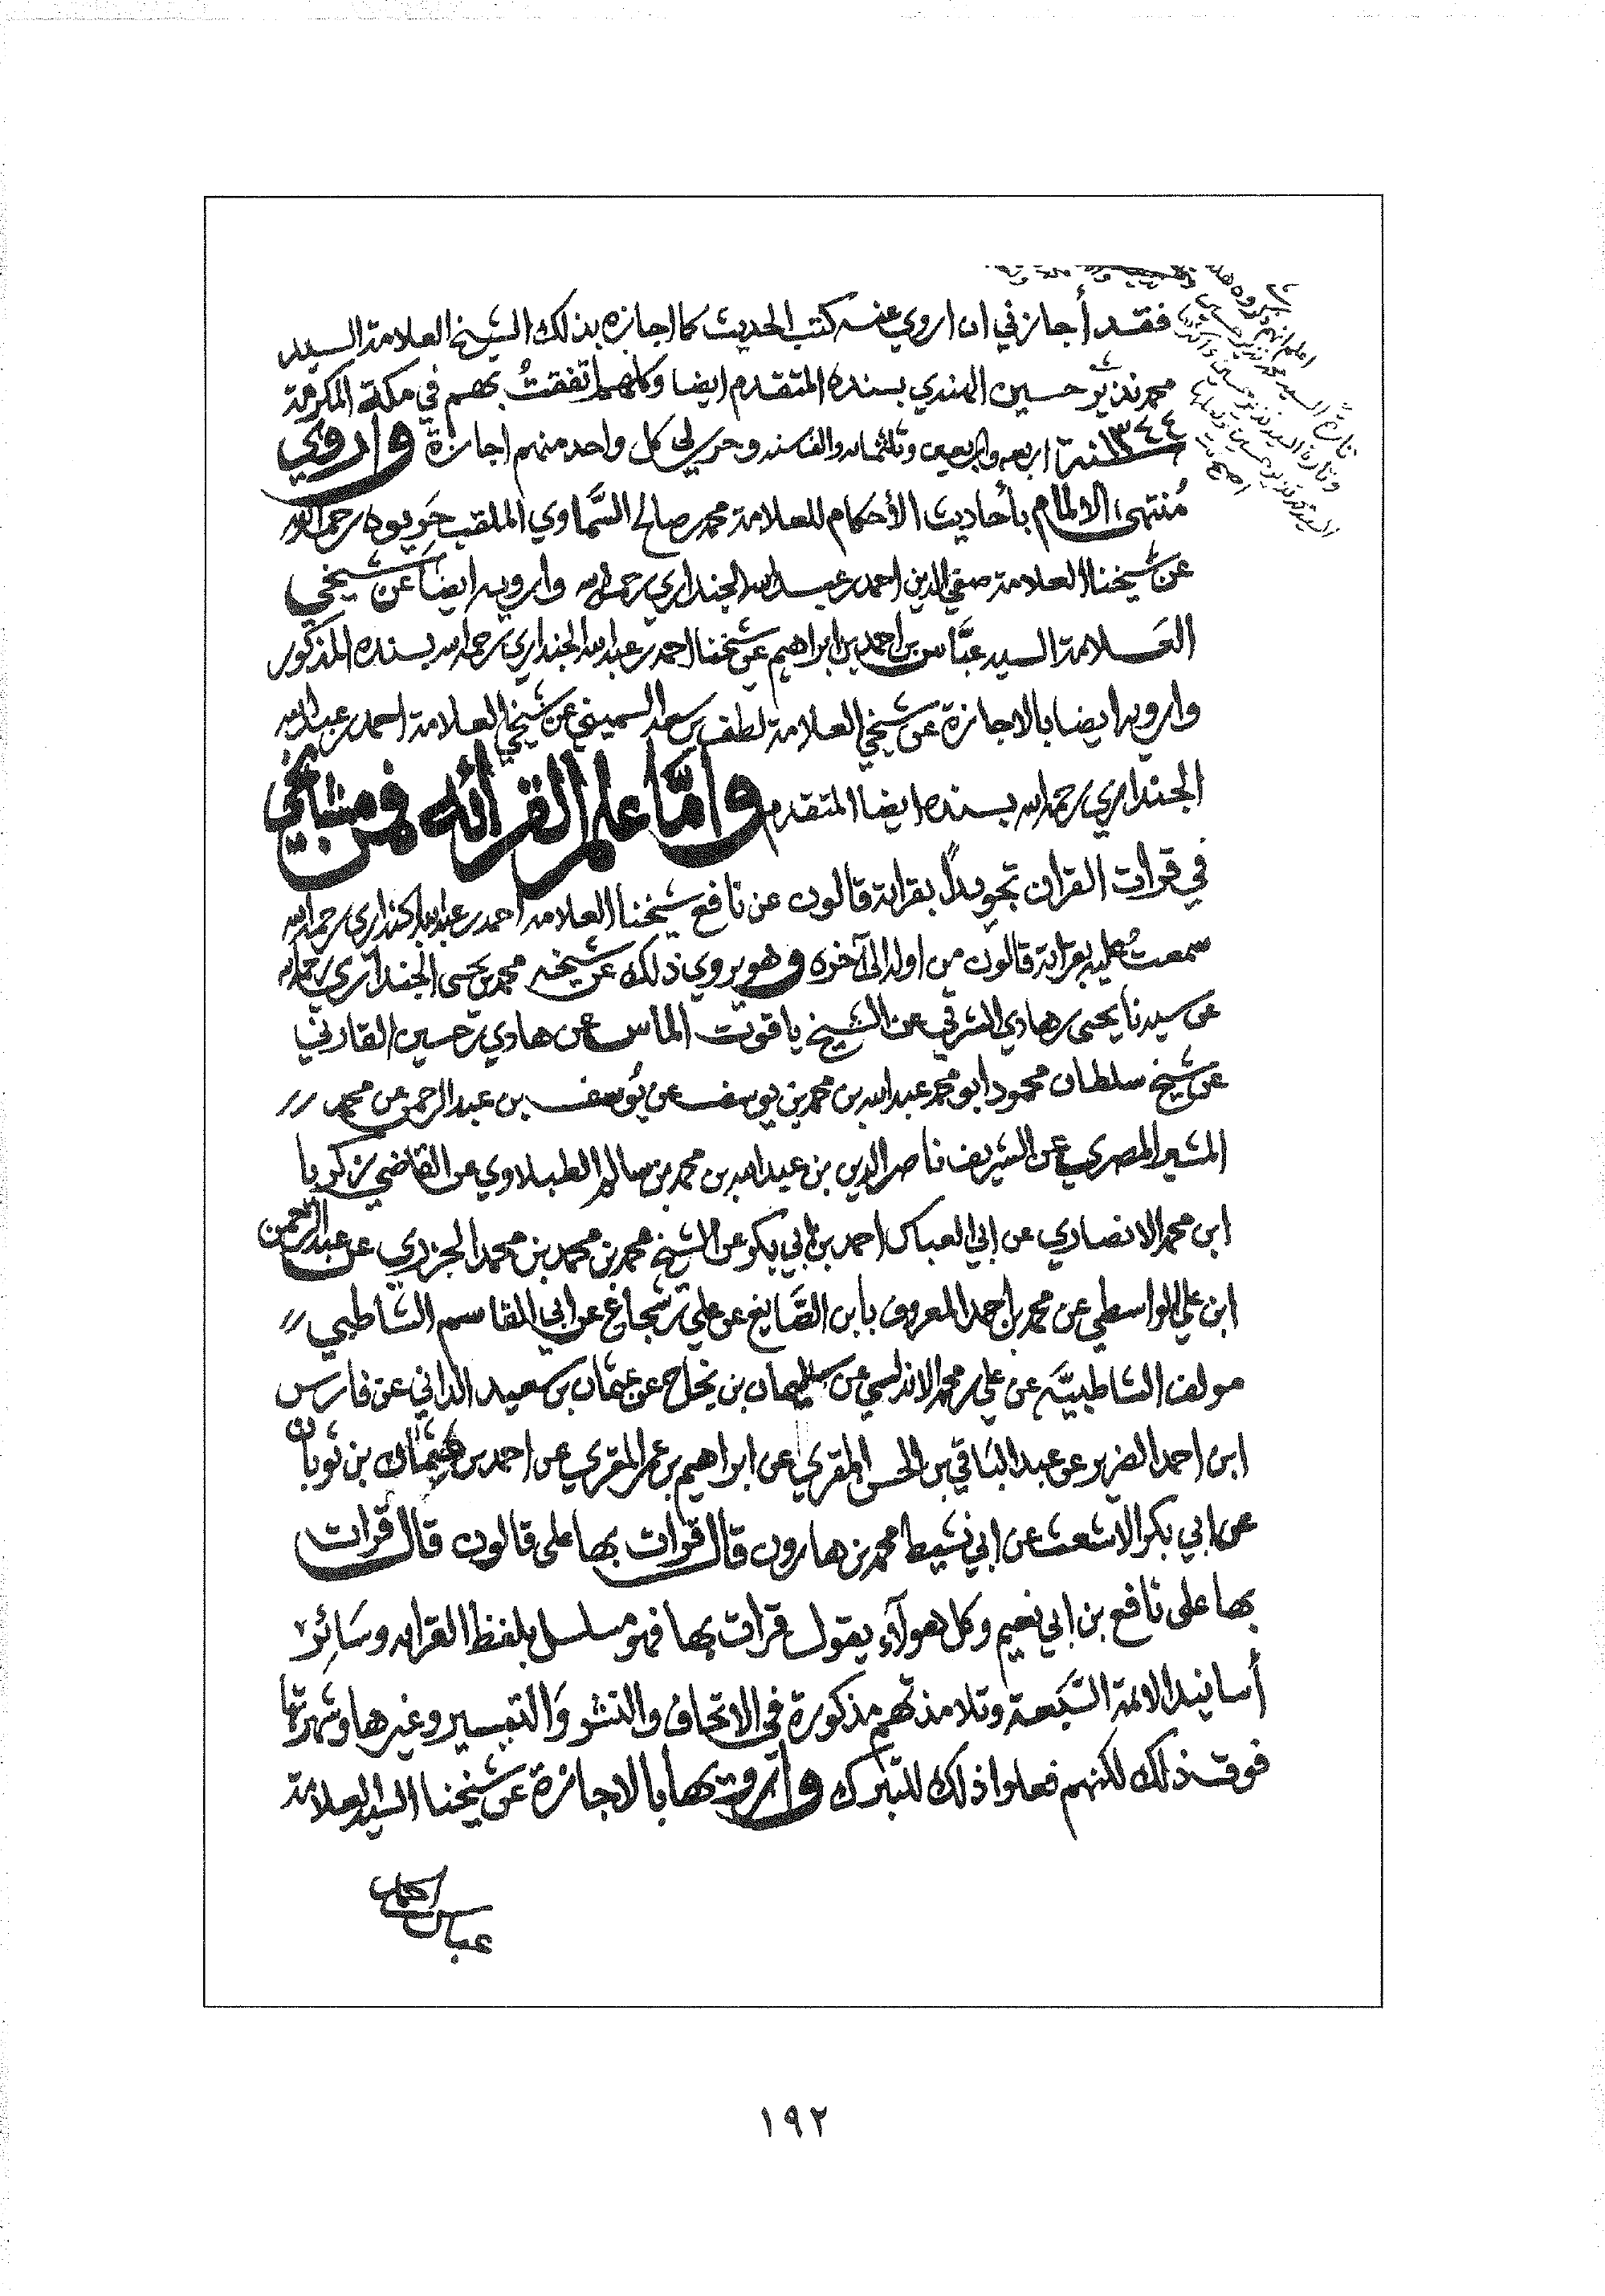 فقد أجازني ان اروي عنه كتب الحديث كما اجازه بذلك الشيخ العلامة السيد
محمد نذير حسين الهندي بسنده المتقدم ايضا وكلهم اتفقتُ بهم في مكة المكرمة
سنة ١٣٤٤ اربعه واربعين وثلثمائه والف سنه وحرر لي كل واحد منهم اجازة واروي
مُنتهى الالمام بأحاديث الأحكام للعلامة محمد بن صالح السَّماوي الملقب حَريوه رحمه الله
عن شيخنا العلامة صفي الدين احمد بن عبدالله الجنداري رحمه الله وارويه ايضاً عن شيخي
العَلامة السيد عبَّاس بن احمد بن ابراهيم عن شيخنا احمد بن عبدالله الجنداري رحمه الله بسنده المذكور
وارويه ايضا بالاجازة عن شيخي العلامة لطف بن سعد السميني عن شيخي العلامة احمد بن عبدالله
الجنداري رحمه الله بسنده ايضا المتقدم وامَّا علم القرائه فمن مشايخي
في قرات القران تجويداً بقراة قالون عن نافع شيخنا العلامه احمد بن عبدالله الجنداري رحمه الله
سمعتُ عليه بقراة قالون من اوله الى آخره وهو يروي ذلك عن شيخه محمد بن يحيى الجنداري رحمه الله
عن سيدنا يحيى بن هادي الشرفي عن الشيخ ياقوت الماس عن هادي بن حسين القارني
عن شيخ سلطان محمود ابو محمد عبدالله بن محمد بن يوسف عن يُوسف بن عبد الرحمن عن محمد //
المشير المصري عن الشريف ناصر الدين بن عبدالله بن محمد بن سالم الطبلاوي عن القاضي زكريا
ابن محمد الانصاري عن ابي العباس احمد بن ابي بكر عن الشيخ محمد بن محمد بن محمد الجزري عن عبد الرحمن
ابن علي الواسطي عن محمد بن احمد المعروف بابن الصَّايغ عن علي بن شجاع عن ابي القاسم الشاطبي //
مولف الشاطبيَّه عن علي بن محمد الاندلسي عن سليمان بن نجاح عن عثمان بن سعيد الداني عن فارس
ابن احمد الضرير عن عبد الباقي بن الحسن المقري عن ابراهيم بن عمر المقري عن احمد بن عثمان بن ثوبان
عن ابي بكر الاشعث عن ابي نشيط محمد بن هارون قال قرات بها على قالون قال قرات
بها على نافع بن ابي نعيم وكل هولآء يقول قرات بها فهو مسلسل بلفظ القراه وسَائِر
أسانيد الائمة السَّبعة وتلامذتهم مذكورة في الاتحاف والنشر وَالتيسير وغيرها وشهرتها
فوق ذلك لكنهم فعلوا ذلك للتبرك وارويها بالاجازة عن شيخنا السيد العلامة
عباس بن احمد
١٩٢